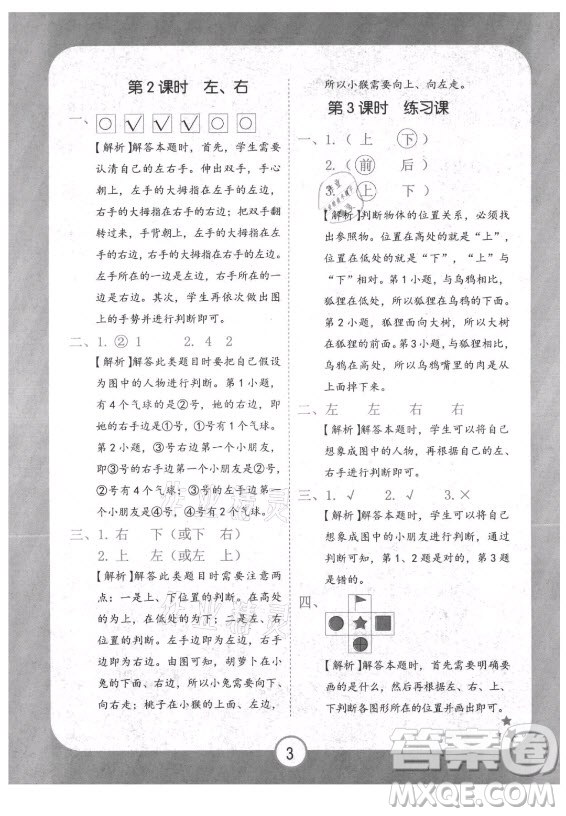 第2课时 左、右
一、○ √ √ √ ○ ○
【解析】解答本题时，首先，学生要
认清自己的左右手。伸出双手，手心
朝上，左手的大拇指在左手的左边，
右手的大拇指在右手的右边；把双手翻
转过来，手心朝下，左手的大拇指在左
手的右边，右手的大拇指在右手的左边。
左手所在的一边是左边，右手所在的
一边是右边。其次，学生再依次做出图
上的手势并进行判断即可。
二、1.② 1 2.4 2
【解析】解答此类题目时要把自己假设
为图中的人物进行判断。第1小题，
有4个气球的是②号，她的左手边是
③号，右手边是①号，①号有1个气球。
第2小题，②号的左面有4个小朋友，
即③号的左边第1个小朋友，即②号
的右面有2个小朋友，
三、1.右 下（或下 右）
2.上 左（或左 上）
【解析】解答此类题目时需要注意两
点：一是上、下位置的判断，在高处
的为上，在低处的为下；二是左、右
位置的判断，在左手边的为左，在右
手边的为右。由图可知，胡萝卜在小
兔的右下方，所以小兔需要向右、向
下走；桃子在小猴的上面、左边，
所以小猴需要向上、向左走。
第3课时 练习课
一、1.（上 下）
2.（前 后）
3.（上 下）
【解析】判断物体的位置关系，必须找
出参照物。位置在高处的就是“上”，
位置在低处的就是“下”，“上”与
“下”相对。第1小题，与乌鸦相比，
狐狸在低处，即狐狸在乌鸦的下面。
第2小题，狐狸面向大树，所以大树
在狐狸的前面。第3小题，狐狸嘴馋
的是肉，所以乌鸦嘴里的肉是从
上面掉下来。
二、左 左 右 右
【解析】解答本题时，学生要将自己想
象成图中的人物，再根据自己的左、
右手进行判断即可。
三、1.√ 2.√ 3.×
【解析】解答本题时，学生要将自己
想象成图中的小朋友进行解答，由图
可判断，第1、2题是对的，第3题
是错的。
四、
【解析】解答本题时，首先需要明确要
画的是什么，然后再根据左、右、上、
下判断各图形所在的位置并画出即可。
3
答案圈
MXQE.COM